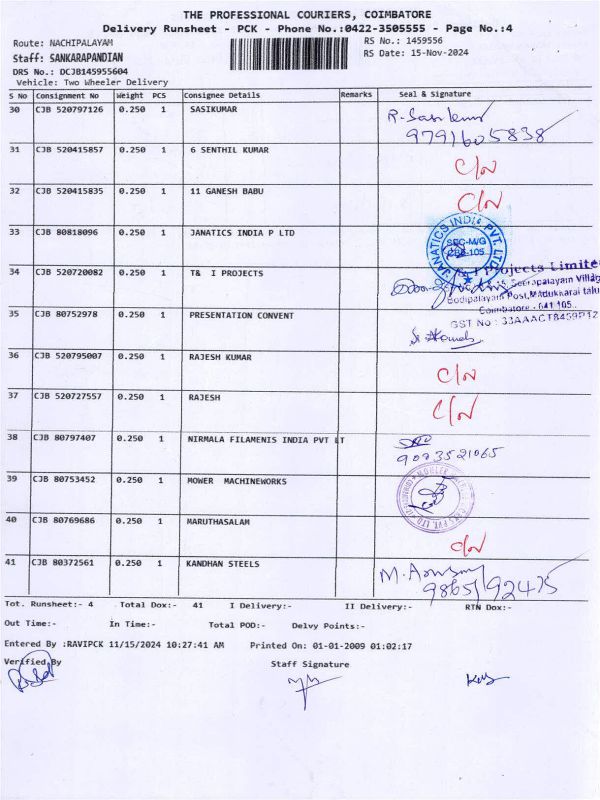 THE PROFESSIONAL COURIERS, COIMBATORE
Delivery Runsheet - PCK - Phone No.:0422-3505555 - Page No.:4
Route: NACHIPALAYAM
RS No.: 1459556
Staff: SANKARAPANDIAN
RS Date: 15-Nov-2024
DRS No.: DCJB145955604
Vehicle: Two Wheeler Delivery
S No Consignment No Weight PCS Consignee Details Remarks Seal & Signature
30 CJB 520797126 0.250 1 SASIKUMAR
9791605838
31 CJB 520415857 0.250 1 6 SENTHIL KUMAR C/N
32 CJB 520415835 0.250 1 11 GANESH BABU C/N
33 CJB 80818096 0.250 1 JANATICS INDIA P LTD
JANATICS INDIA PVT. LTD
34 CJB 520720082 0.250 1 T& I PROJECTS
Projects Limite
Seerapalayam Villag
Bodipalayam Post, Madukkarai talu
Coimbatore - 641 105.
GST No : 33AAACT8459P1Z
35 CJB 80752978 0.250 1 PRESENTATION CONVENT
36 CJB 520795007 0.250 1 RAJESH KUMAR C/N
37 CJB 520727557 0.250 1 RAJESH C/N
38 CJB 80797407 0.250 1 NIRMALA FILAMENIS INDIA PVT LT
9093521065
39 CJB 80753452 0.250 1 MOWER MACHINEWORKS
40 CJB 80769686 0.250 1 MARUTHASALAM C/N
41 CJB 80372561 0.250 1 KANDHAN STEELS
Tot. Runsheet:- 4 Total Dox:- 41 I Delivery:- II Delivery:- RTN Dox:-
Out Time:- In Time:- Total POD:- Delvy Points:-
Entered By :RAVIPCK 11/15/2024 10:27:41 AM Printed On: 01-01-2009 01:02:17
Verified By Staff Signature